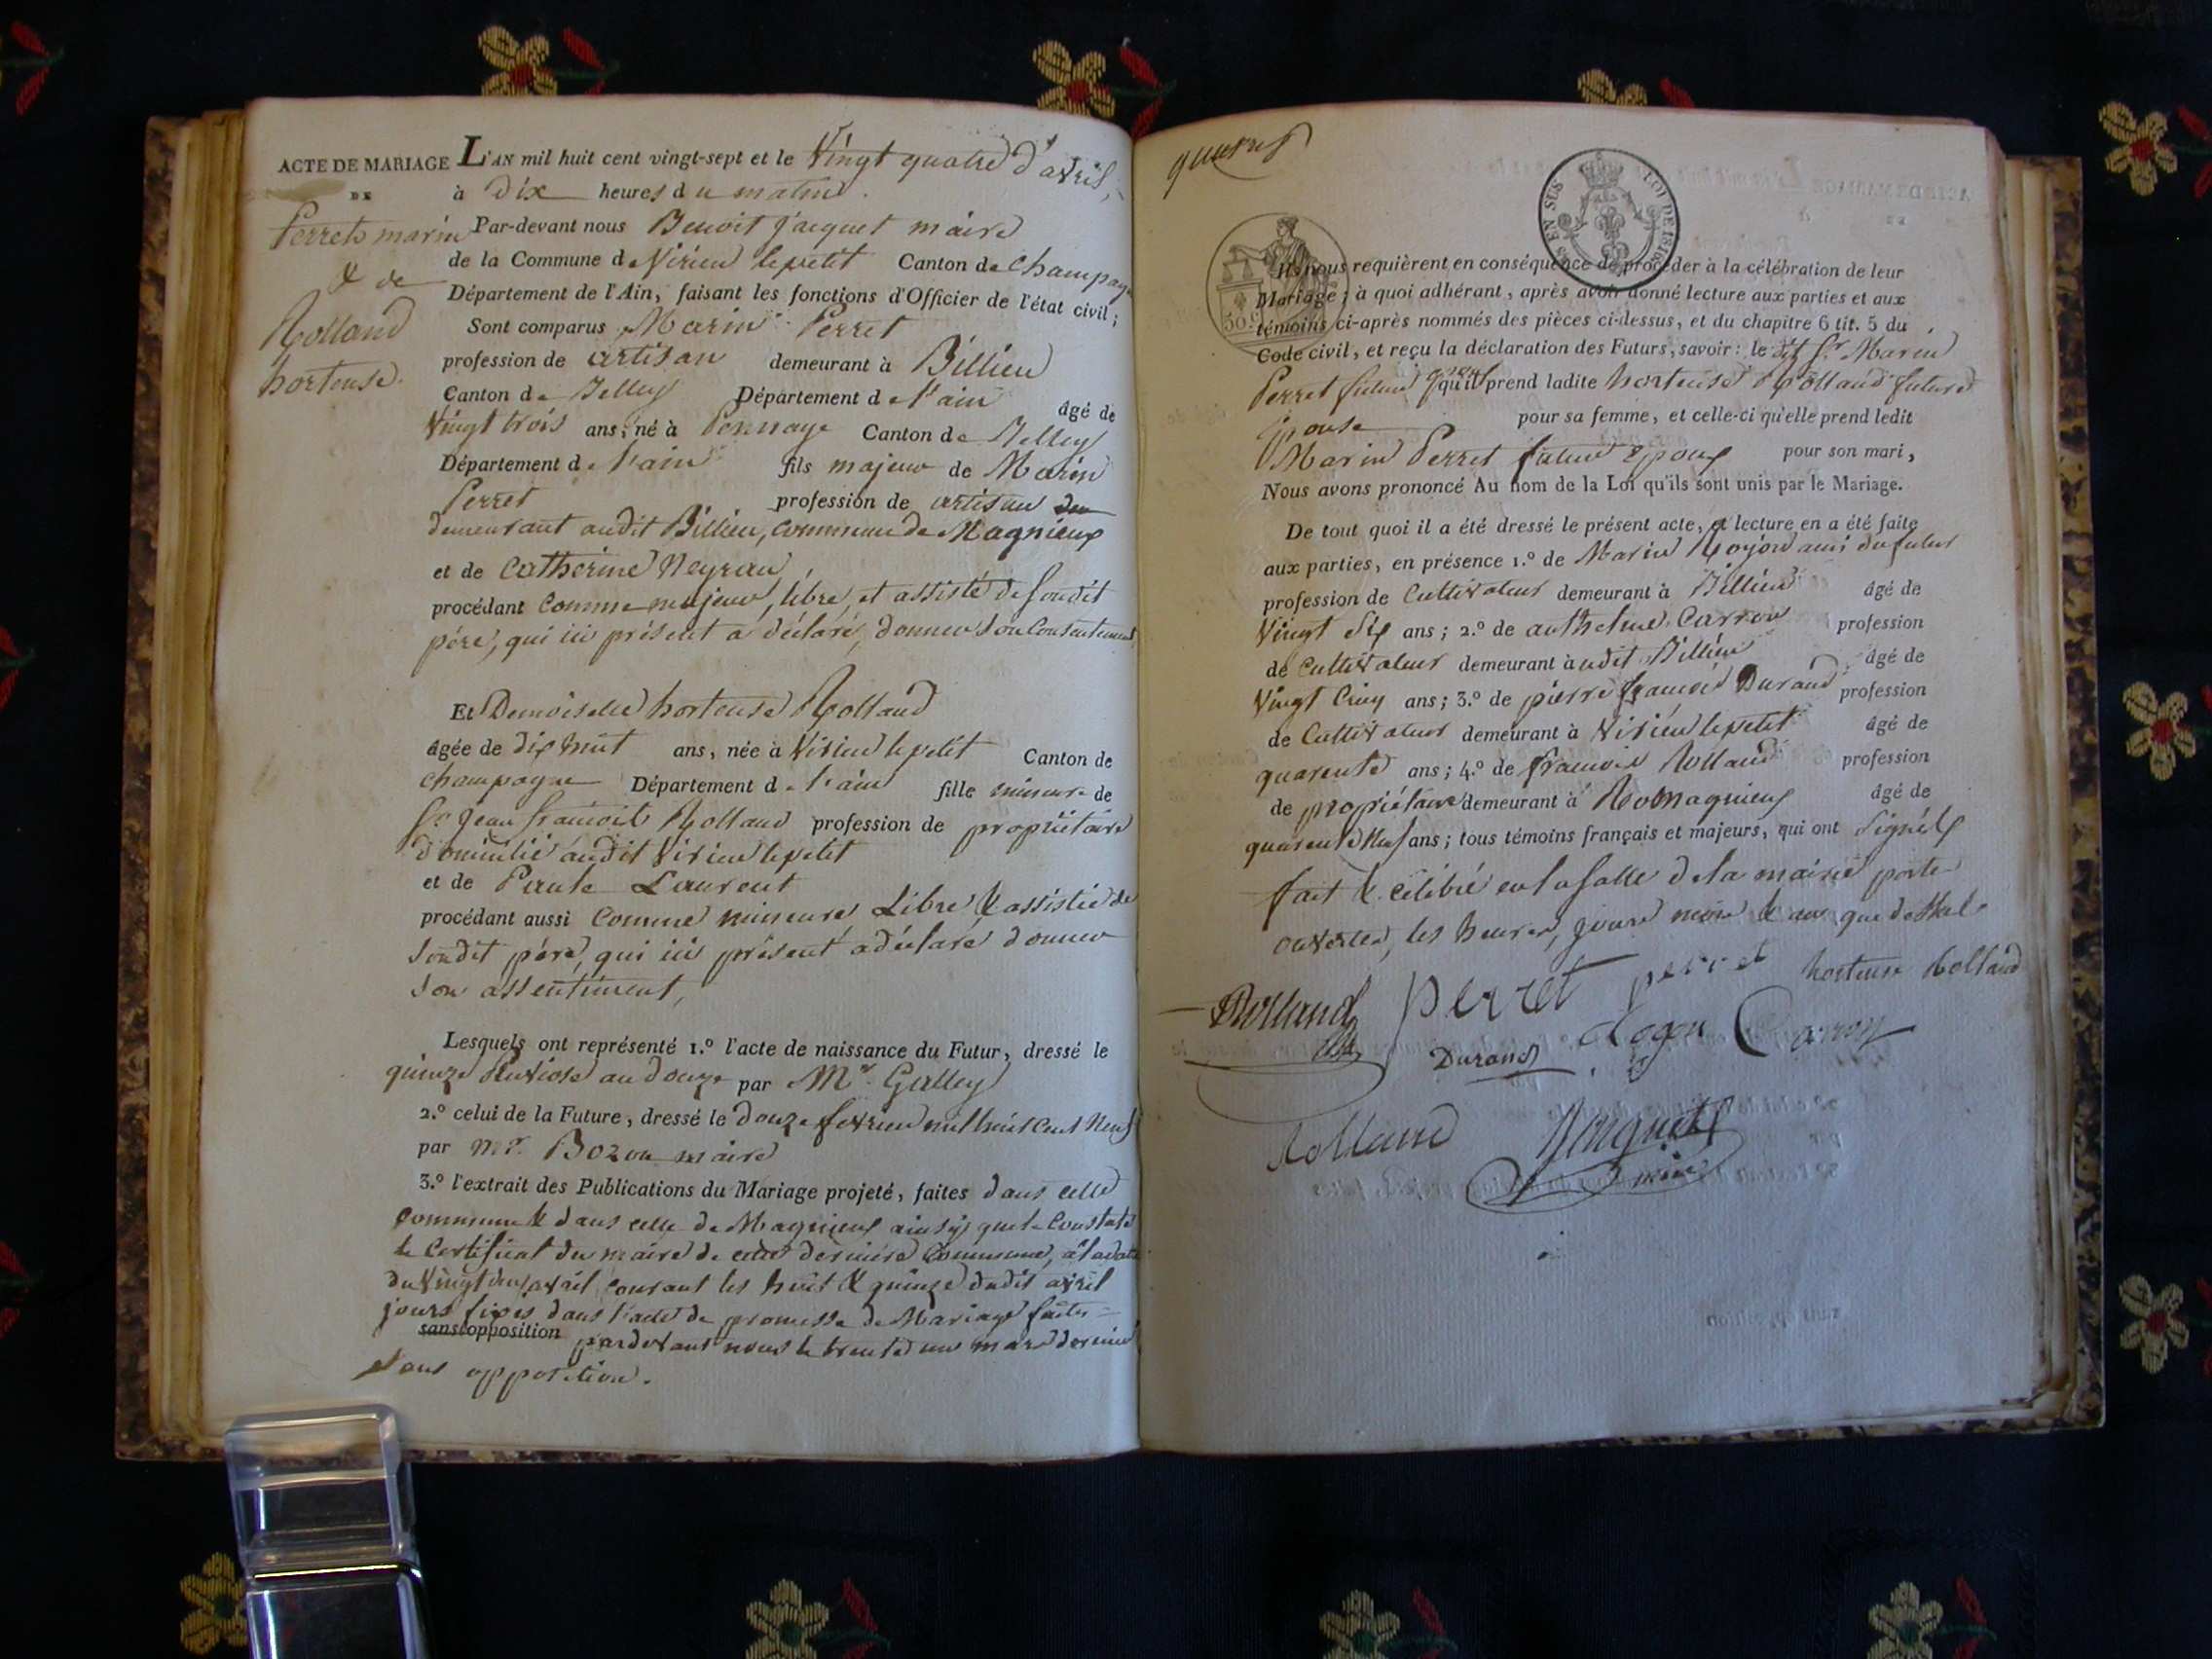 ACTE DE MARIAGE
DE
Perret marin
& de
Rolland
hortense.
L'AN mil huit cent vingt-sept et le Vingt quatre d'avril,
à Dix heures du matin.
Par-devant nous Benoit Jacquet maire
de la Commune de Virieu le petit Canton de Champagne
Département de l'Ain, faisant les fonctions d'Officier de l'état civil;
Sont comparus Marin Perret
profession de artisan demeurant à Billieu
Canton de Belley Département de l'ain âgé de
Vingt trois ans, né à Canton de Belley
Département de l'ain fils majeur de Marin
Perret profession de artisan
demeurant audit Billieu, commune de Magnieux
et de Catherine Neyrau,
procédant comme majeur, libre, et assisté de soudit
pére, qui ici présent a déclaré, donner son Consentement
Et Demoiselle hortense Rolland
âgée de dix huit ans, née à Virieu le petit Canton de
champagne Département de l'ain fille mineure de
Sr Jean françois Rolland profession de propriétaire
domicilié audit Virieu le petit
et de Paule Laurent
procédant aussi Comme mineure Libre & assistée de
soudit pére, qui ici présent a déclaré donner
son assentiment,
Lesquels ont représenté 1.º l'acte de naissance du Futur, dressé le
quinze Pluviose an douze par Mr. Galley
2.º celui de la Future, dressé le douze fevrier mil huit Cent Neuf
par Mr. Bozon maire
3.º l'extrait des Publications du Mariage projeté, faites dans celle
commune & dans celle de Magnieux ainsy que le Constate
le Certificat du maire de cette derniére Commune, à la date
du Vingt deux avril courant les huit & quinze dudit avril
jours fixés dans l'acte de promesse de Mariage faites
sans opposition pardevant nous le trente un mars dernier
sans opposition.
EN SUS LOI DE 1816
50 c
Ils nous requièrent en conséquence de procéder à la célébration de leur
Mariage; à quoi adhérant, après avoir donné lecture aux parties et aux
témoins ci-après nommés des pièces ci-dessus, et du chapitre 6 tit. 5 du
Code civil, et reçu la déclaration des Futurs, savoir: le dit Sr Marin
Perret futur époux qu'il prend ladite hortense Rolland future
épouse pour sa femme, et celle-ci qu'elle prend ledit
Marin Perret futur Epoux pour son mari,
Nous avons prononcé Au nom de la Loi qu'ils sont unis par le Mariage.
De tout quoi il a été dressé le présent acte, et lecture en a été faite
aux parties, en présence 1.º de Marin ami du futur
profession de Cultivateur demeurant à Billieu âgé de
Vingt Six ans; 2.º de anthelme Carron profession
de Cultivateur demeurant à udit Billieu âgé de
Vingt Cinq ans; 3.º de pierre françois Durand profession
de Cultivateur demeurant à Virieu le petit âgé de
quarente ans; 4.º de françois Rolland profession
de propriétaire demeurant à Romagnieux âgé de
quarente Neuf ans; tous témoins français et majeurs, qui ont Signés
fait & célébré en la Salle de la mairie porte
ouverte, les heures, jour mois & an que dessus
Rolland Perret perret hortense Rolland
Durand Caron
Rolland Jacquet
maire